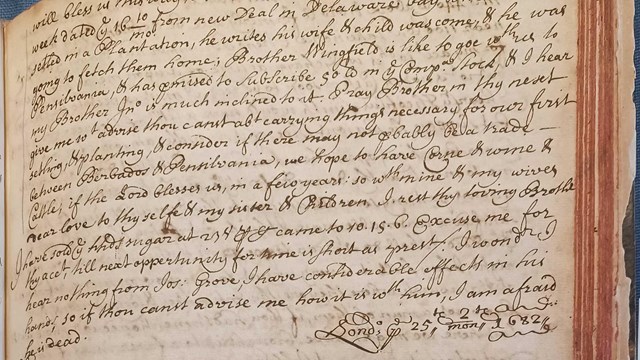 will bless us this way
week dated ye 16 10 mo from new Deal in Delaware bay
setled in a Plantation, he writes his wife & child was come, & he was
going to fetch them home; Brother Wingfield is like to goe wth us to
Pensilvania, & has pmised to Subscribe 50 ld in ye Compa stock, & I hear
my Brother Jno is much inclined to it. Pray Brother in thy next
give me wt advise thou canst abt carrying things necessary for our first
setling, & planting, & consider if there may not pbably be a trade —
between Berbados & Pensilvania, we hope to have Corne & wine &
Catle, if the Lord blesses us, in a few years: so wth mine & my wives
Dear love to thy selfe & my sister & Children. I rest thy loving Brother
I have sold ye hhds sugar at 23/ & came to 10.15.6. Excuse me for
thy acct till next opportunity for time is short at prest /. I wonder I
hear nothing from Jos: Grove, I have considerable effects in his
hand, so if thou canst advise me how it is wth him, I am afraid
he is dead.
Londo ye 25th 2d mon 1682